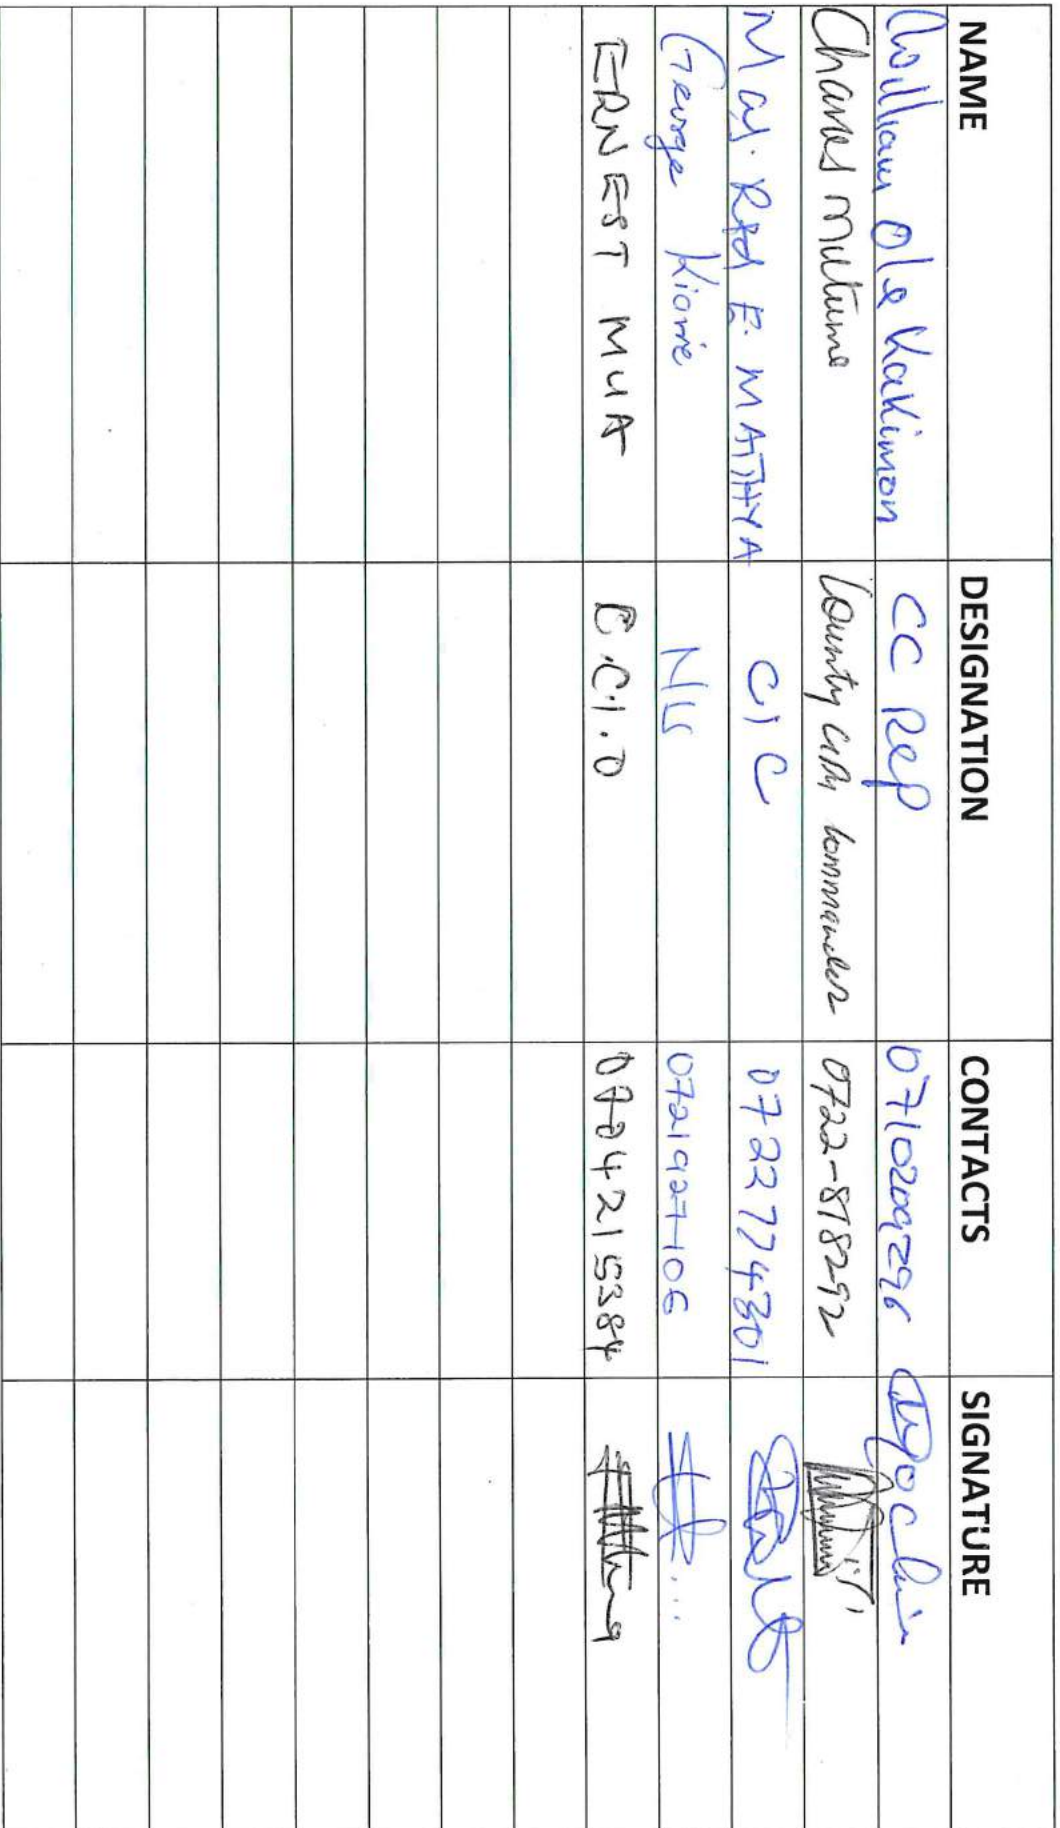 NAME DESIGNATION CONTACTS SIGNATURE
William Ole Kakimon CC Rep 0710209296
Charles Mutume County Commander 0722-818292
Maj. Rtd E. MATHYA CIC 0722774301
George Kiarie NIS 0721927106
ERNEST MUA C.C.I.O 0704215384